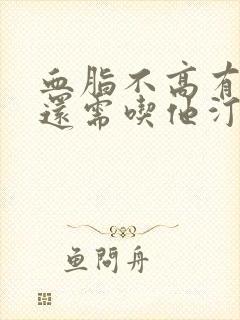 血脂不高有
還需喫他汀
鱼問舟